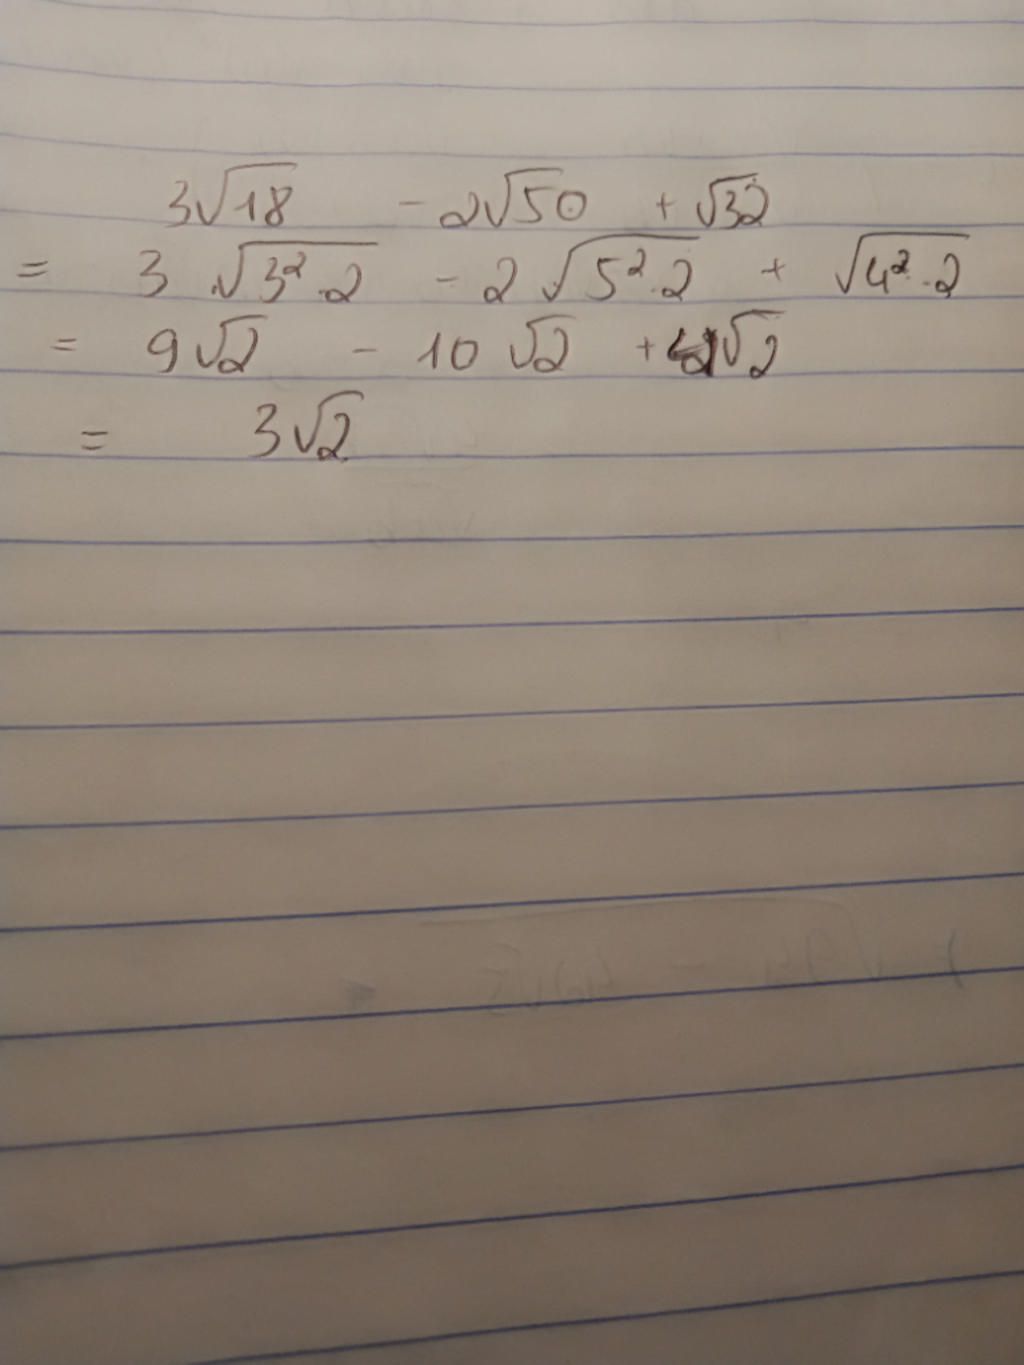 3√18 - 2√50 + √32
= 3 √3² · 2 - 2 √5² · 2 + √4² · 2
= 9√2 - 10√2 + 4√2
= 3√2